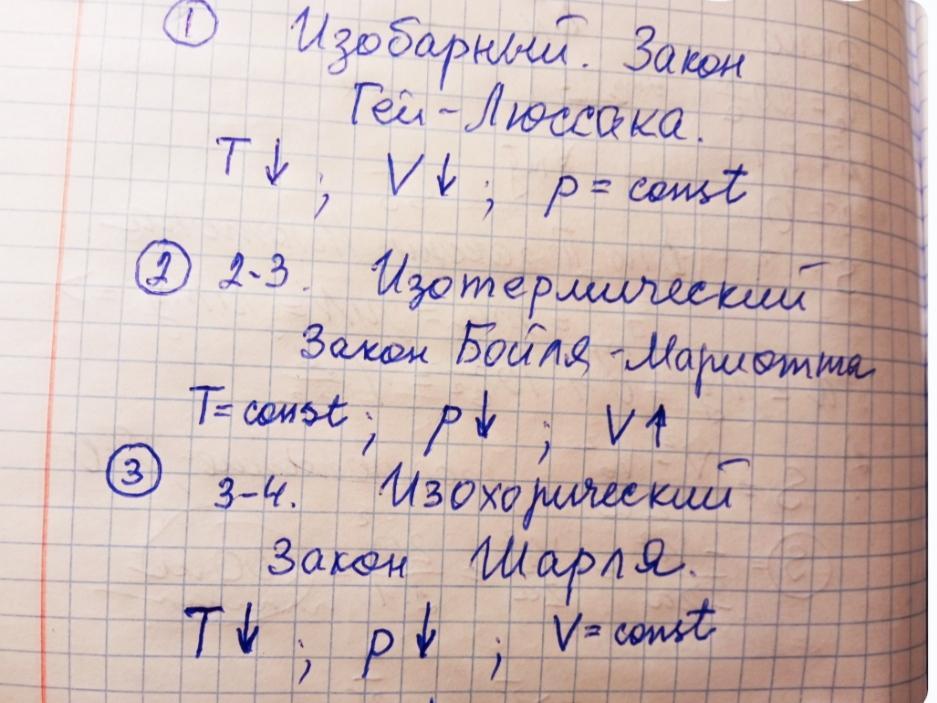 ① Изобарный. Закон
Гей-Люссака.
T↓ ; V↓ ; p = const
② 2-3. Изотермический
Закон Бойля-Мариотта
T= const ; p↓ ; V↑
③ 3-4. Изохорический
Закон Шарля.
T↓ ; p↓ ; V= const